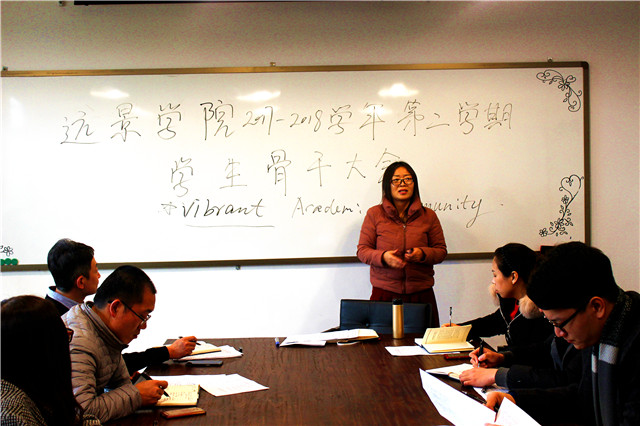 远景学院2017-2018学年第二学期
学生骨干大会
*Vibrant Academi munity.